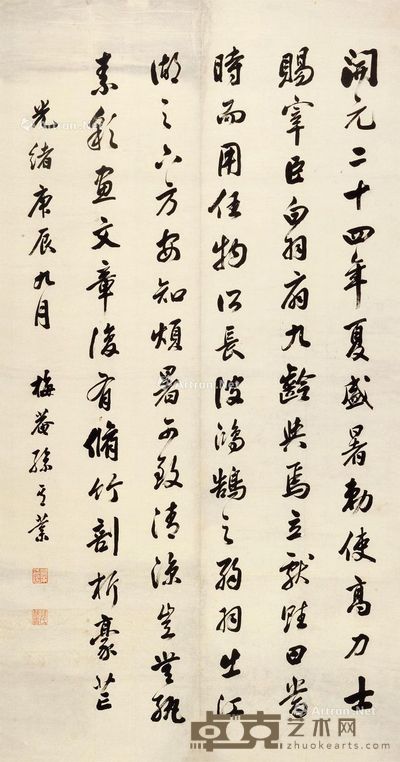 開元二十四年夏盛暑勅使高力士
賜宰臣白羽扇九齡與焉立獻賦曰當
時而用任物所長彼鴻鵠之弱羽出江
湖之下方安知煩暑可致清涼豈無紈
素彩畫文章復有脩竹剖析豪芒
光緒庚辰九月 梅菴孫
Artron.Net
卓克艺术网
zhuokearts.com